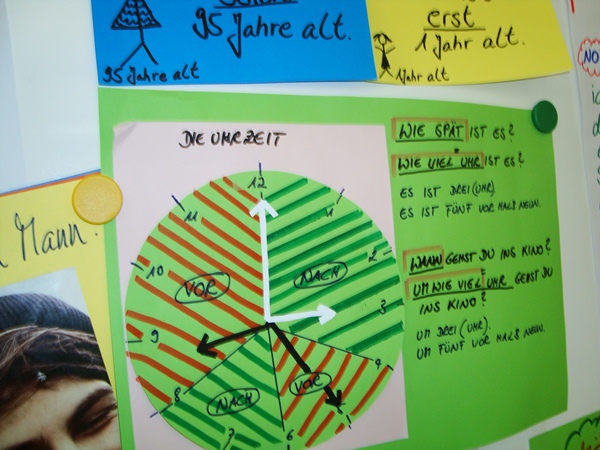 95 Jahre alt.
95 Jahre alt
erst
1 Jahr alt.
1 Jahr alt
NO
Mann.
DIE UHRZEIT
12
1
2
3
4
6
7
8
9
10
11
VOR
NACH
NACH
VOR
WIE SPÄT IST ES?
WIE VIEL UHR IST ES?
ES IST DREI (UHR).
ES IST FÜNF VOR HALB NEUN.
WANN GEHST DU INS KINO?
UM WIE VIEL UHR GEHST DU
INS KINO?
UM DREI (UHR).
UM FÜNF VOR HALB NEUN.